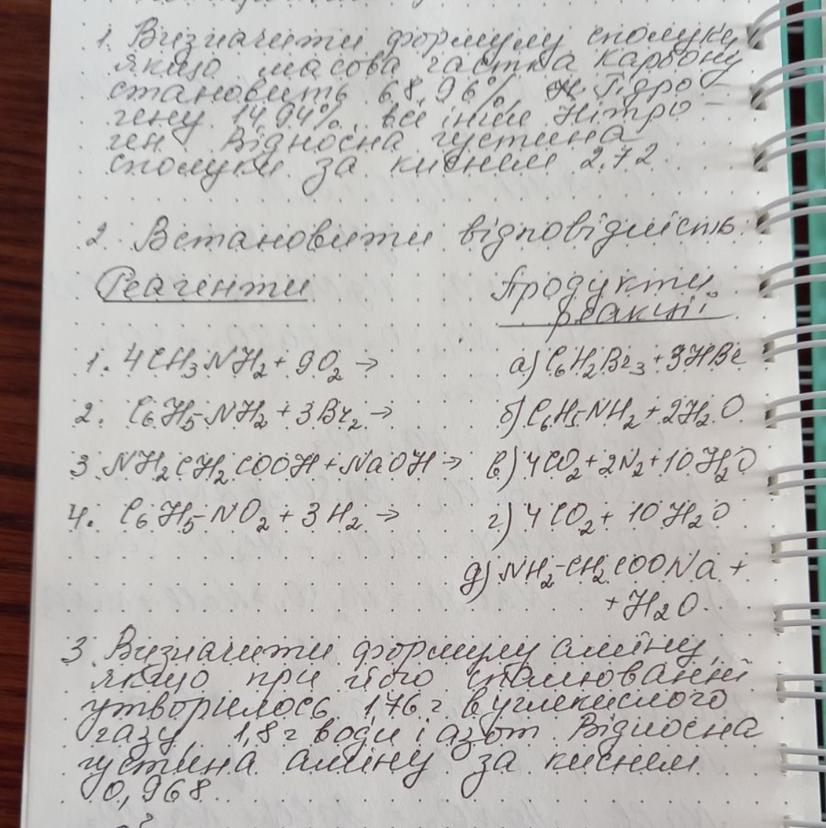 1. Визначити формулу сполуки,
якщо масова частка карбону
становить 68,96%, Гідро-
гену 14,94%, все інше Нітро-
ген. Відносна густина
сполуки за киснем 2,72.
2. Встановити відповідність:
Реагенти
Продукти
реакції
1. 4CH₃NH₂ + 9O₂ →
а) C₆H₂Br₃ + 3HBr
2. C₆H₅-NH₂ + 3Br₂ →
б) C₆H₅NH₂ + 2H₂O
3. NH₂CH₂COOH + NaOH →
в) 4CO₂ + 2N₂ + 10H₂O
4. C₆H₅-NO₂ + 3H₂ →
г) 4CO₂ + 10H₂O
д) NH₂-CH₂COONa +
+ H₂O
3. Визначити формулу аміну,
якщо при його спалюванні
утворилось 1,76 г вуглекислого
газу, 1,8 г води і азот. Відносна
густина аміну за киснем
0,968.